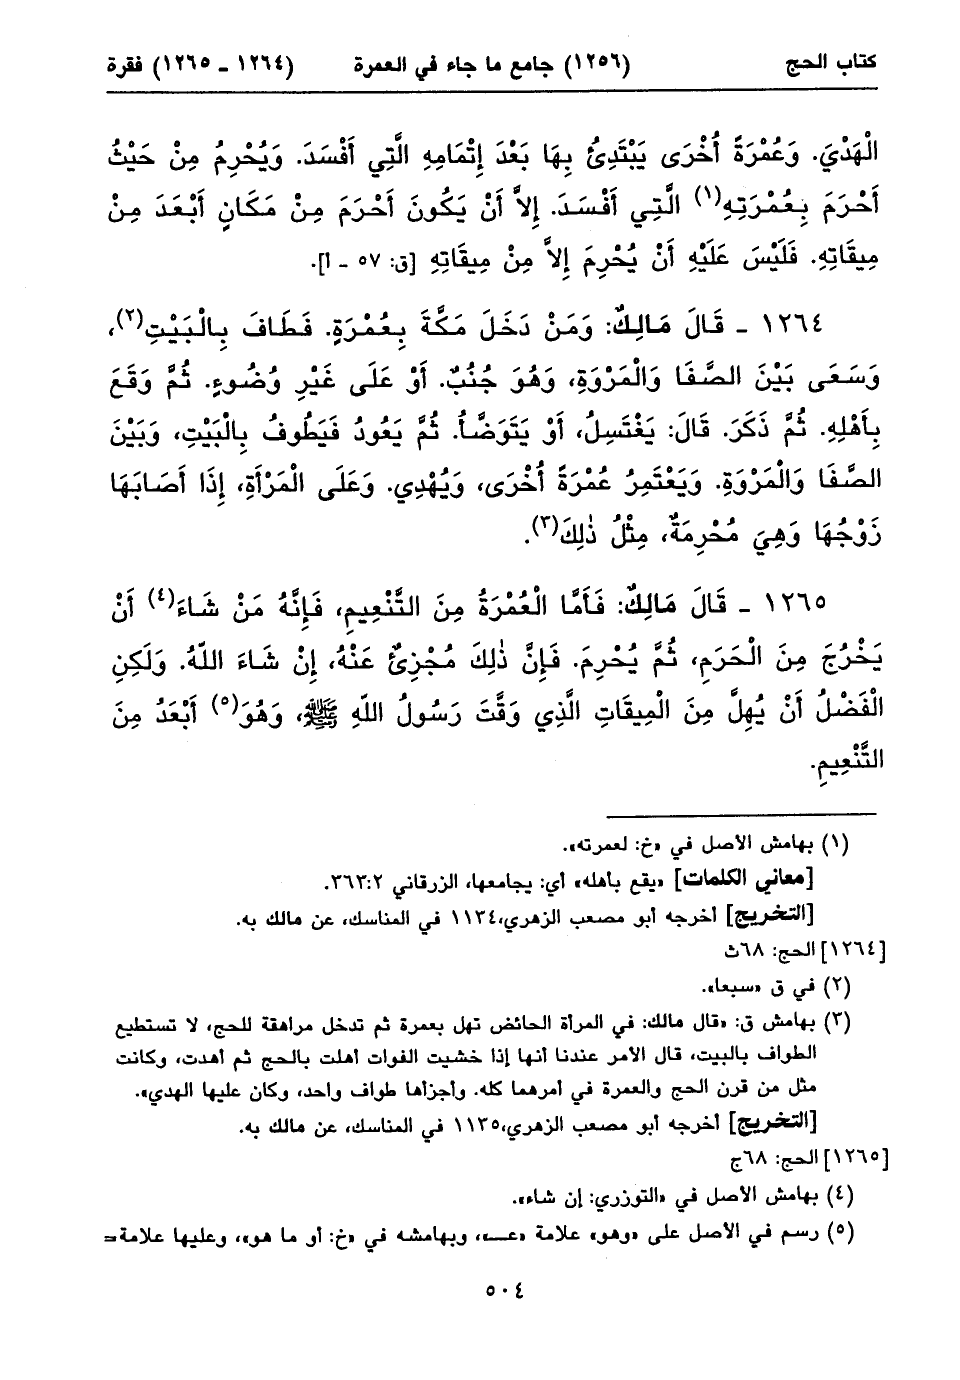 كتاب الحج (١٢٥٦) جامع ما جاء في العمرة (١٢٦٤ ـ ١٢٦٥) فقرة
الْهَدْيَ. وَعُمْرَةً أُخْرَى يَبْتَدِئُ بِهَا بَعْدَ إِتْمَامِهِ الَّتِي أَفْسَدَ. وَيُحْرِمُ مِنْ حَيْثُ
أَحْرَمَ بِعُمْرَتِهِ(١) الَّتِي أَفْسَدَ. إِلاَّ أَنْ يَكُونَ أَحْرَمَ مِنْ مَكَانٍ أَبْعَدَ مِنْ
مِيقَاتِهِ. فَلَيْسَ عَلَيْهِ أَنْ يُحْرِمَ إِلاَّ مِنْ مِيقَاتِهِ [ق: ٥٧ ـ أ].
١٢٦٤ ـ قَالَ مَالِكٌ: وَمَنْ دَخَلَ مَكَّةَ بِعُمْرَةٍ. فَطَافَ بِالْبَيْتِ(٢)،
وَسَعَى بَيْنَ الصَّفَا وَالْمَرْوَةِ، وَهُوَ جُنُبٌ. أَوْ عَلَى غَيْرِ وُضُوءٍ. ثُمَّ وَقَعَ
بِأَهْلِهِ. ثُمَّ ذَكَرَ. قَالَ: يَغْتَسِلُ، أَوْ يَتَوَضَّأُ. ثُمَّ يَعُودُ فَيَطُوفُ بِالْبَيْتِ، وَبَيْنَ
الصَّفَا وَالْمَرْوَةِ. وَيَعْتَمِرُ عُمْرَةً أُخْرَى، وَيُهْدِي. وَعَلَى الْمَرْأَةِ، إِذَا أَصَابَهَا
زَوْجُهَا وَهِيَ مُحْرِمَةٌ، مِثْلُ ذٰلِكَ(٣).
١٢٦٥ ـ قَالَ مَالِكٌ: فَأَمَّا الْعُمْرَةُ مِنَ التَّنْعِيمِ، فَإِنَّهُ مَنْ شَاءَ(٤) أَنْ
يَخْرُجَ مِنَ الْحَرَمِ، ثُمَّ يُحْرِمَ. فَإِنَّ ذٰلِكَ مُجْزِئٌ عَنْهُ، إِنْ شَاءَ اللّهُ. وَلَكِنِ
الْفَضْلُ أَنْ يُهِلَّ مِنَ الْمِيقَاتِ الَّذِي وَقَّتَ رَسُولُ اللّهِ ﷺ، وَهُوَ(٥) أَبْعَدُ مِنَ
التَّنْعِيمِ.
(١) بهامش الأصل في «خ: لعمرته».
[معاني الكلمات] «يقع بأهله» أي: يجامعها، الزرقاني ٣٦٣:٢.
[التخريج] أخرجه أبو مصعب الزهري،١١٣٤ في المناسك، عن مالك به.
[١٢٦٤] الحج: ٦٨ث
(٢) في ق «سبعا».
(٣) بهامش ق: «قال مالك: في المرأة الحائض تهل بعمرة ثم تدخل مراهقة للحج، لا تستطيع
الطواف بالبيت، قال الأمر عندنا أنها إذا خشيت الفوات أهلت بالحج ثم أهدت، وكانت
مثل من قرن الحج والعمرة في أمرهما كله. وأجزأها طواف واحد، وكان عليها الهدي».
[التخريج] أخرجه أبو مصعب الزهري،١١٣٥ في المناسك، عن مالك به.
[١٢٦٥] الحج: ٦٨ج
(٤) بهامش الأصل في «التوزري: إن شاء».
(٥) رسم في الأصل على «وهو» علامة «عـ»، وبهامشه في «خ: أو ما هو»، وعليها علامة=
٥٠٤